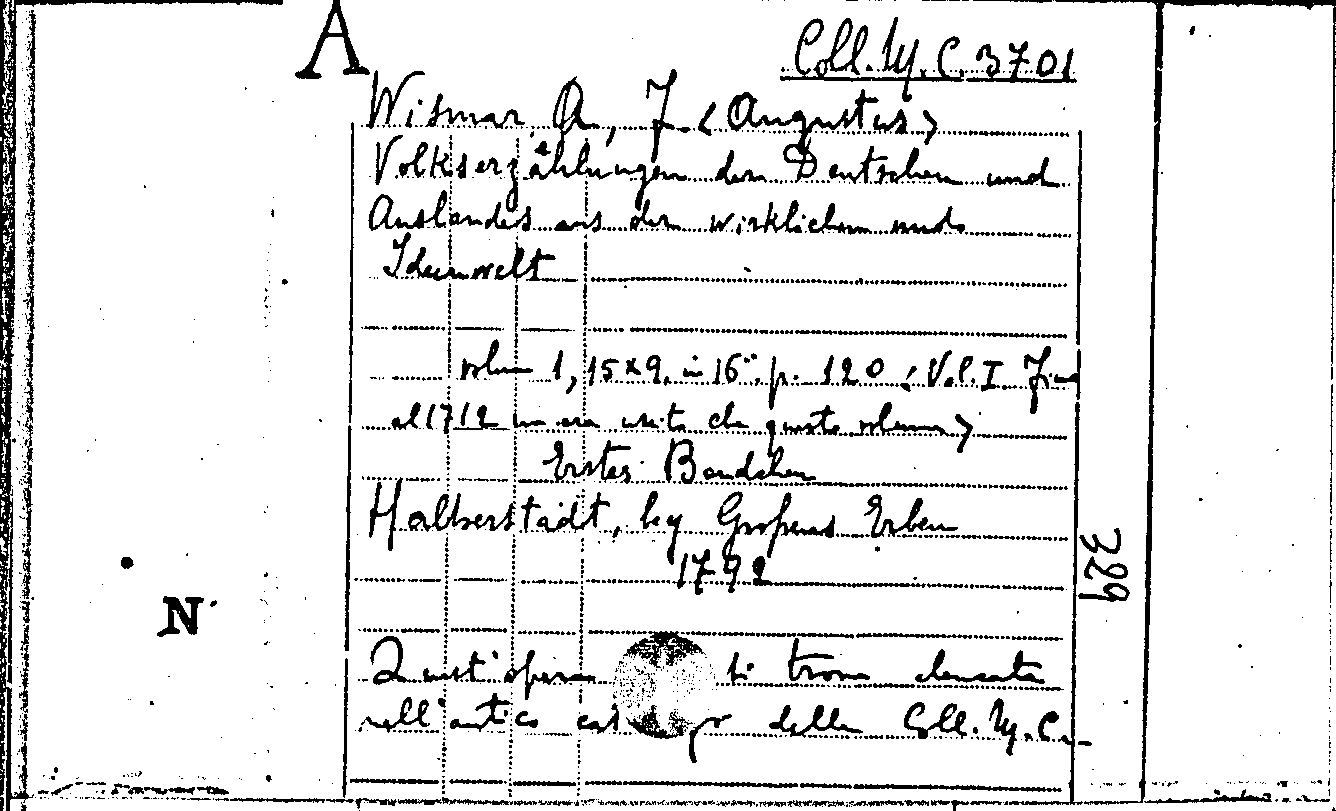 A
Coll. M. C. 3701
Wismar A, J. < Augustus >
Volkserzählungen den Deutschen und
Auslandes aus der wirklichen und
Ideenwelt
volum 1, 15x9. in 16° p. 120 < Vol. I Fino
al 1712 non era uscito che questo volume >
Erstes Bandchen
Halberstadt, bey Großens Erben
1792
329
N
Quest'opera si trova elencata
nell'antico cat go della Coll. M. C.